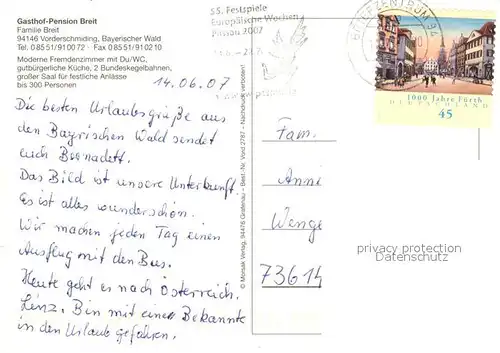 Gasthof-Pension Breit
Familie Breit
94146 Vorderschmiding, Bayerischer Wald
Tel. 0 85 51/91 00 72 · Fax 0 85 51/91 02 10
Moderne Fremdenzimmer mit Du/WC,
gutbürgerliche Küche, 2 Bundeskegelbahnen,
großer Saal für festliche Anlässe
bis 300 Personen
14.06.07
Die besten Urlaubsgrüße aus
den Bayrischen Wald sendet
euch Bernadett.
Das Bild ist unsere Unterkunft.
Es ist alles wunderschön.
Wir machen jeden Tag einen
Ausflug mit den Bus.
Heute geht es nach Österreich.
Linz. Bin mit einer Bekannte
in den Urlaub gefahren.
© Morsak Verlag, 94476 Grafenau – Best.-Nr. Vord 2787 – Nachdruck verboten!
55. Festspiele
Europäische Wochen
Passau 2007
BRIEFZENTRUM 94
1000 Jahre Fürth
DEUTSCHLAND
45
Fam.
Anni
Wenge
73614
privacy protection
Datenschutz